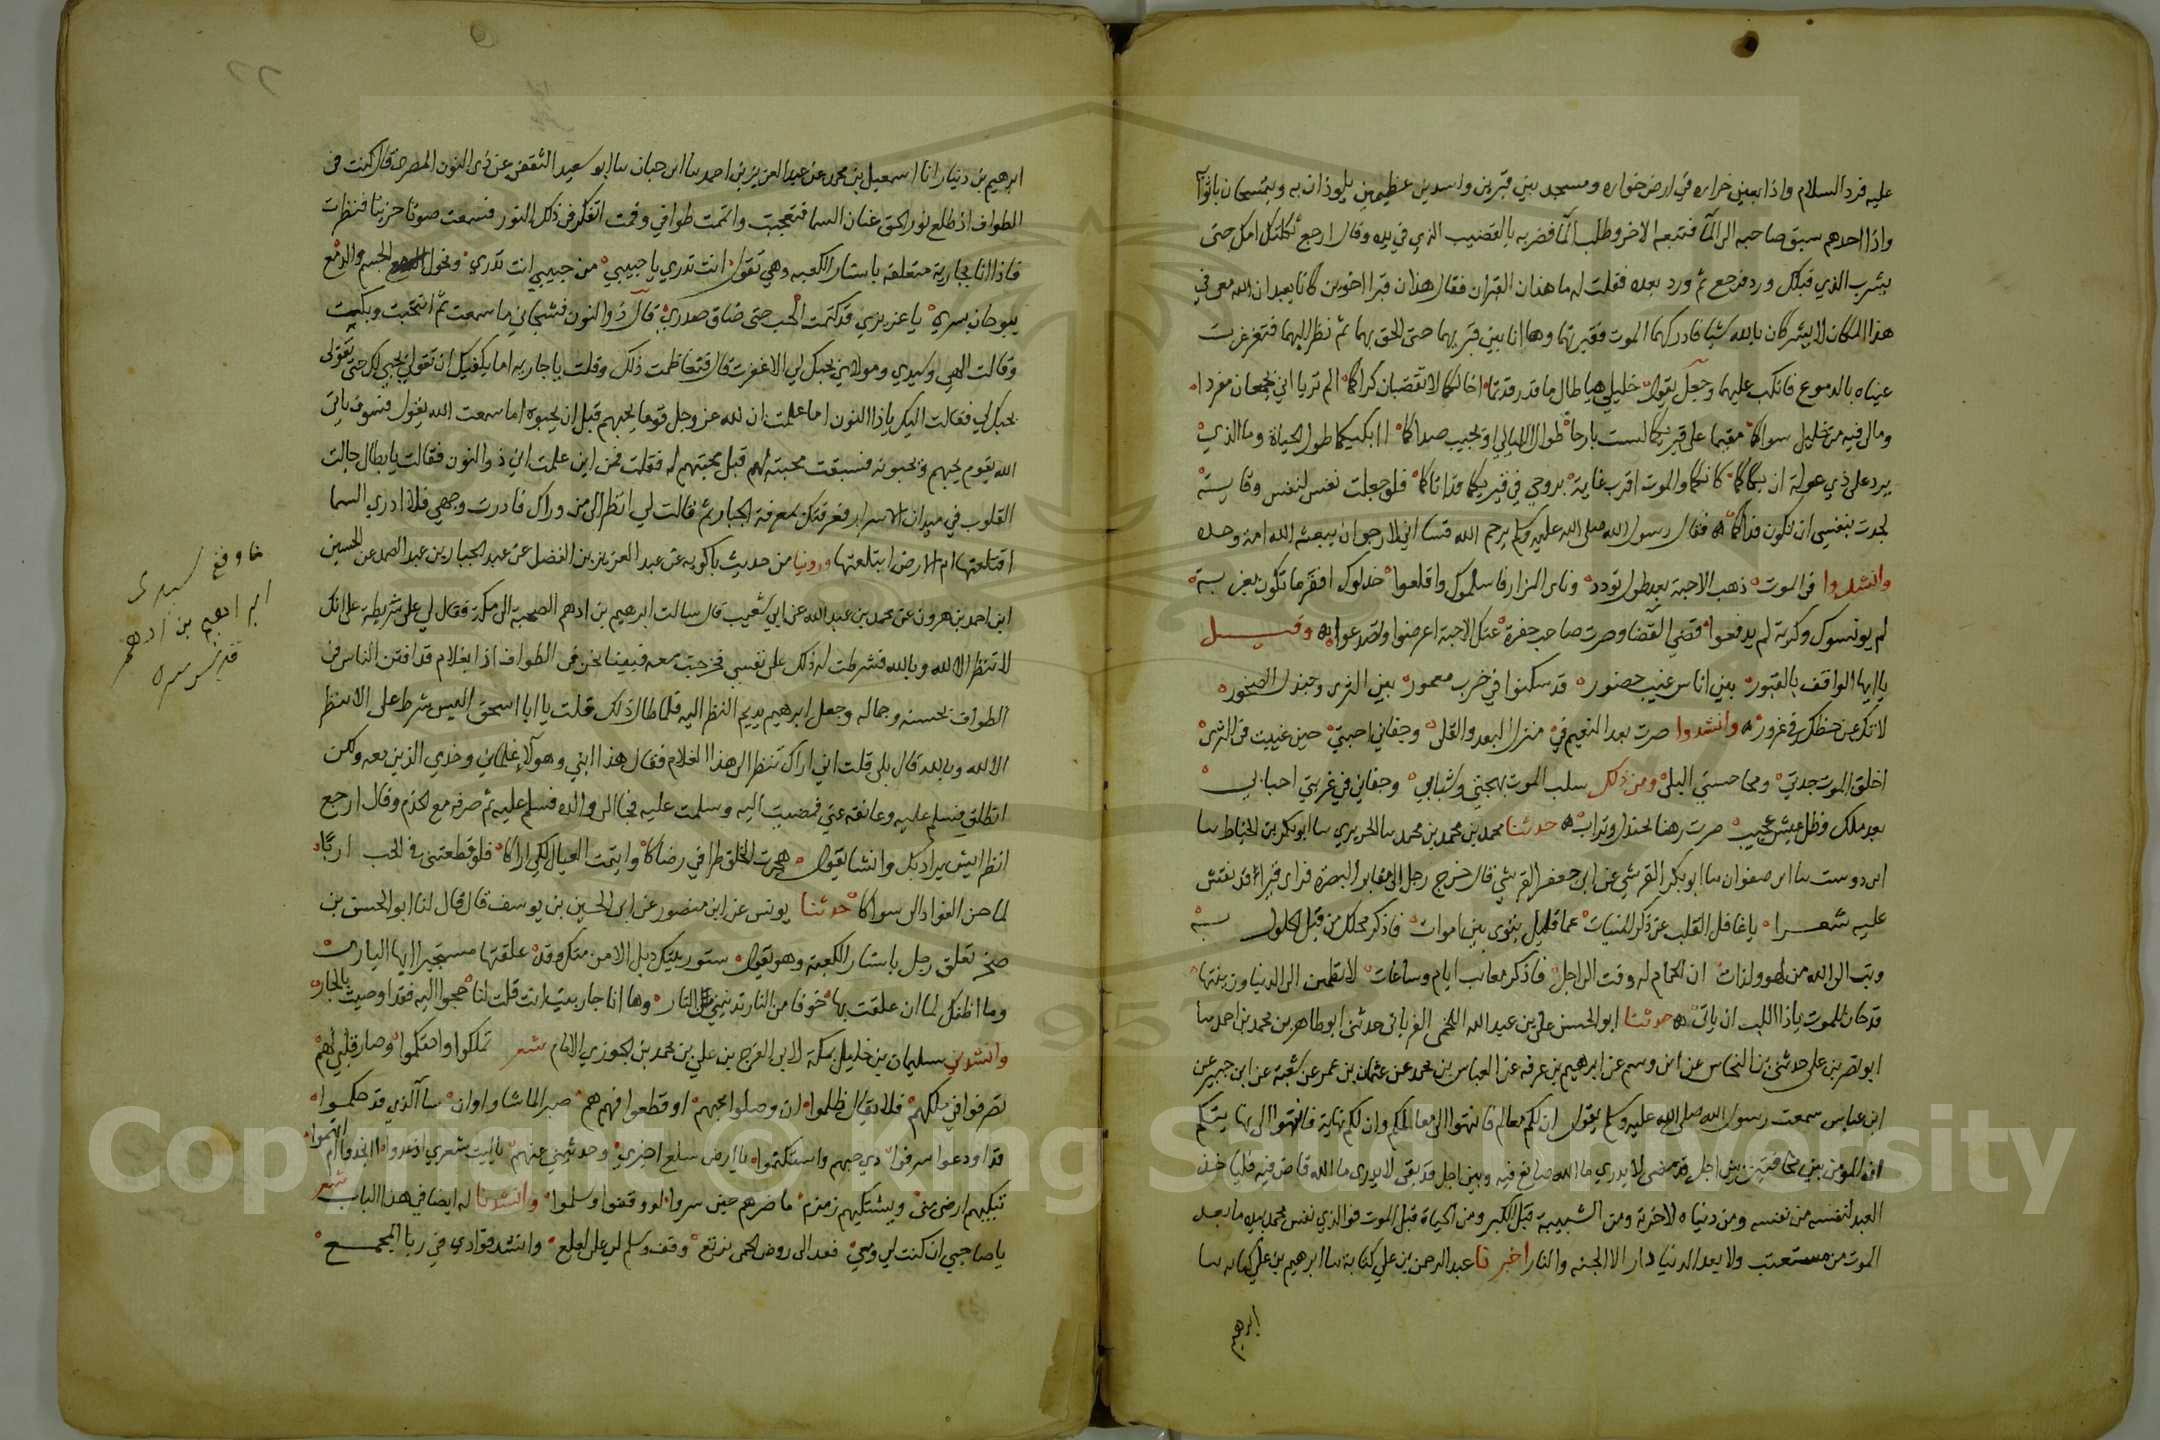 عليه فرد السلام واذا بعين خراره في ارض خواره ومسجد بين قبرين واسدين عظيمين يلوذان به ويتمسحان باثوا
واذا احدهم سبق صاحبه الى الما فتبعه الاخر وطلب الما فضربه بالقضيب الذي في يده وقال ارجع ثكلتك امك حتى
يشرب الذي قبلك ورد فرجع ثم ورد بعده فقلت له ما هذان القبران فقال هذان قبرا اخوين كانا يعبدان الله معي في
هذا المكان لا يشركان بالله شيا فادركهما الموت فقبرتهما وها انا بين قبريهما حتى الحق بهما ثم نظر اليهما فتغرغرت
عيناه بالدموع فانكب عليهما وجعل يقول خليلي هبا طال ما قد رقدتما اجدكما لا تقضيان كراكما الم تريا اني بجمعان مفردا
ومالي فيه من خليل سواكما مقيما على قبريكما لست بارحا طوال الليالي او يجيب صداكما ا ابكيكما طول الحياة وما الذي
يرد على ذي عولة ان بكاكما كانكما والموت اقرب غاية بروحي في قبريكما قد اتاكما فلو جعلت نفس لنفس وقاية
لجدت بنفسي ان تكون فداكما فقال رسول الله صلى الله عليه وسلم يرحم الله قسا اني لارجو ان يبعثه الله امة وحده
وانشدوا في الموت ذهب الاحبة بعد طول تودد وناى المزار فاسلموك واقلعوا خذلوك افقر ما تكون بغربة
لم يونسوك وكربة لم يدفعوا قضي القضا وصرت صاحب حفرة عنك الاحبة اعرضوا وتصدعوا وقيل
يا ايها الواقف بالقبور بين اناس غيب حضور قد سكنوا في خرب معمور بين الثرى وجندل الصخور
لا تك عن حظك في غرور وانشدوا صرت بعد النعيم في منزل البعد والقلى وجفاني احبتي حين غيبت في الثرى
اخلق الموت جدتي ومحا حسني البلى ومن ذلك سلب الموت بهجتي وشبابي وجفاني في غربتي احبابي
بعد ملك وظل عيش عجيب صرت رهنا لجندل وتراب حدثنا محمد بن محمد بن محمد سا الحريري سا ابو بكر بن الخياط سا
ابن دوست سا ابن صفوان سا ابو بكر القرشي عن ابي جعفر القرشي قال خرج رجل الى مقابر البصرة فراى قبرا قد نقش
عليه شعرا يا غافل القلب عن ذكر المنيات عما قليل ستثوى بين اموات فاذكر محلك من قبل الحلول به
وتب الى الله من لهو ولذات ان الحمام له وقت الى اجل فاذكر مصائب ايام وساعات لا تطمئن الى الدنيا وزينتها
قد حان للموت يا ذا اللب ان ياتي حدثنا ابو الحسن علي بن عبد الله اللخمي الغرياني حدثني ابو طاهر بن محمد بن احمد سا
ابو نصر بن علي حدثني بن النحاس عن ابن وسم عن ابرهيم بن عرفه عن العباس بن محمد عن عثمان بن عمر عن شعبة عن ابن جبير عن
ابن عباس سمعت رسول الله صلى الله عليه وسلم يقول ان لكم معالم فانتهوا الى معالمكم وان لكم نهاية فانتهوا الى نهايتكم
ان المومن بين مخافتين بين اجل قد مضى لا يدري ما الله صانع فيه وبين اجل قد بقي لا يدري ما الله قاض فيه فلياخذ
العبد لنفسه من نفسه ومن دنياه لاخرته ومن الشبيبة قبل الكبر ومن الحياة قبل الموت فوالذي نفس محمد بيده ما بعد
الموت من مستعتب ولا بعد الدنيا دار الا الجنه والنار اخبرنا عبد الرحمن بن علي كتابة سا ابرهيم بن علي كتابه سا
ابرهيم
ابرهيم بن دنيار انا اسمعيل بن محمد عن عبد العزيز بن احمد سا ابن حبان سا ابو سعيد الثقفي عن ذي النون المصري قال كنت في
الطواف اذ طلع نور لحق عنان السما فتعجبت واتممت طوافي وقمت اتفكر في ذلك النور فسمعت صوتا حزينا فنظرت
فاذا انا بجارية متعلقة باستار الكعبه وهي تقول انت تدري يا حبيبي من حبيبي انت تدري ونحول الجسم والدمع
يبوحان بسري يا عزيزي قد كتمت الحب حتى ضاق صدري قال ذو النون فشجاني ما سمعت ثم انتحبت وبكت
وقالت الهي وسيدي ومولاي بحبك لي الا غفرت لي قال فتعاظمت ذلك وقلت يا جارية اما يكفيك ان تقولي بحبي لك حتى تقولي
بحبك لي فقالت اليك يا ذا النون اما علمت ان لله عز وجل قوما يحبهم قبل ان يحبوه اما سمعت الله يقول فسوف ياتي
الله بقوم يحبهم ويحبونه فسبقت محبته لهم قبل محبتهم له فقلت فمن اين علمت اني ذو النون فقالت يا بطال جالت
القلوب في ميدان الاسرار فعرفتك بمعرفة الجبار ثم قالت لي انظر الى من وراك فادرت وجهي فلا ادري السما
اقتلعتها ام الارض ابتلعتها وروينا من حديث باكويه عن عبد العزيز بن الفضل عن عبد الجبار بن عبد الصمد عن الحسين
ابن احمد بن هرون عن محمد بن عبد الله عن ابي شعيب قال سالت ابرهيم بن ادهم الصحبة الى مكة فقال لي على شريطة على انك
لا تنظر الا لله وبالله فشرطت له ذلك على نفسي فخرجت معه فبينا نحن في الطواف اذا بغلام قد افتتن الناس في
الطواف بحسنه وجماله وجعل ابرهيم يديم النظر اليه فلما طال ذلك قلت يا ابا اسحق اليس شرط علي الا انظر
الا لله وبالله قال بلى قلت اني اراك تنظر الى هذا الغلام فقال هذا ابني وهولا غلماني وخدمي الذين معه ولكن
انطلق فسلم عليه وعانقه عني فمضيت اليه وسلمت عليه فجا الى والده فسلم عليه ثم صرفه مع الخدم وقال ارجع
انظر ايش يراد بك وانشا يقول هجرت الخلق طرا في رضاكا وايتمت العيال لكي اراكا فلو قطعتني في الحب اربا
لما حن الفواد الى سواكا حدثنا يونس عن ابن منصور عن ابي الحسين بن يوسف قال قال لنا ابو الحسن بن
صخر تعلق رجل باستار الكعبة وهو يقول ستور بيتك ذيل الامن منك وقد علقتها مستجيرا ايها الباري
وما اظنك لما ان علقت بها خوفا من النار تدنيني من النار وها انا جار بيت انت قلت لنا حجوا اليه وقد اوصيت بالجار
وانشدني سليمان بن خليل بمكة لابي الفرج بن علي بن محمد بن الجوزي الامام شعر تملكوا واحتكموا وصار قلبي لهم
تصرفوا في ملكهم فلا يقال ظلموا ان وصلوا محبهم او قطعوا فهم هم صبرا لما شاوا وان سا الذي قد حكموا
قد اودعوا سر فوادي حبهم واستكتموا يا ارض سلع اخبري وحدثيني عنهم يا ليت شعري اذ غدوا اانجدوا ام اتهموا
تبكيهم ارض منى ويشتكيهم زمزم ما ضرهم حين سروا لو وقفوا وسلموا وانشدنا له ايضا في هذا الباب شعر
يا صاحبي ان كنت لي ومعي فعد الى روض الحمى نرتع وقف وسلم لي على لعلع وانشد فوادي في ربا المجمع
ما وقع لسيدي
ابراهيم بن ادهم
قدس سره